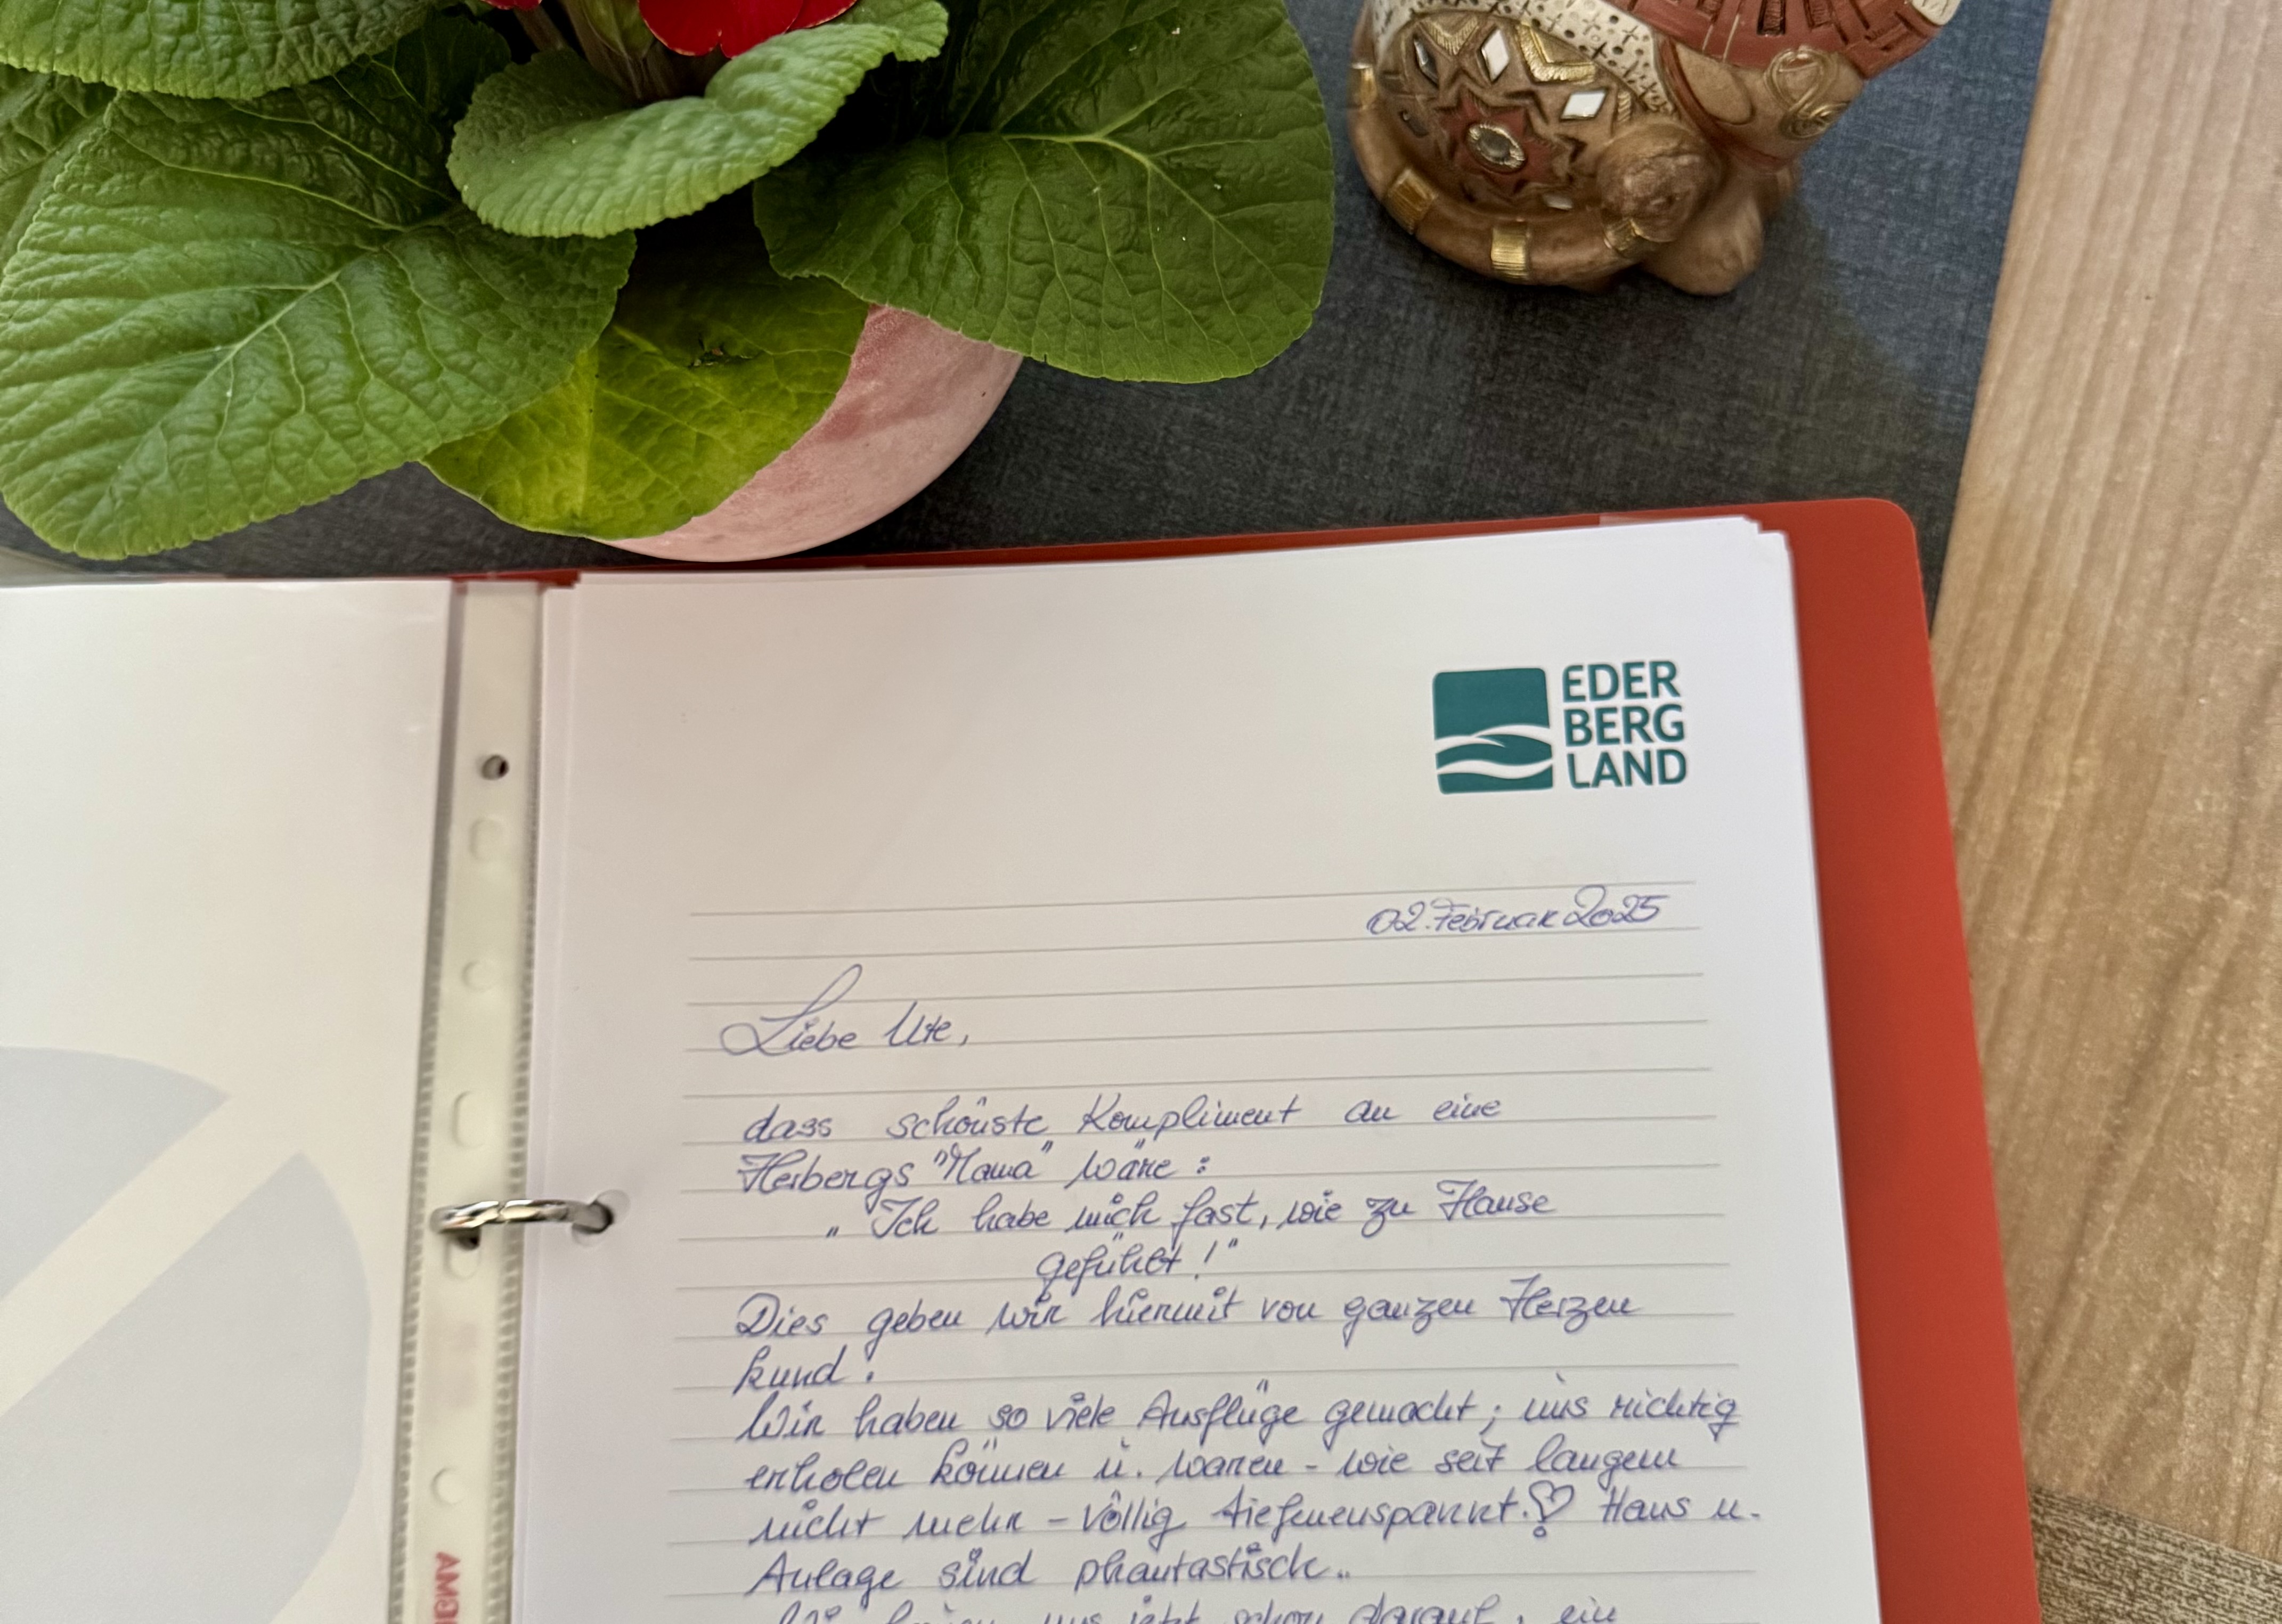 EDER
BERG
LAND
02. Februar 2025
Liebe Ute,
dass schönste Kompliment an eine
Herbergs "Mama" wäre:
„Ich habe mich fast, wie zu Hause
gefühlt!"
Dies geben wir hiermit von ganzen Herzen
kund.
Wir haben so viele Ausflüge gemacht; uns richtig
erholen können u. waren - wie seit langem
nicht mehr - völlig tiefenenspannt.♡ Haus u.
Anlage sind phantastisch..
Wir freuen uns jetzt schon darauf, ein